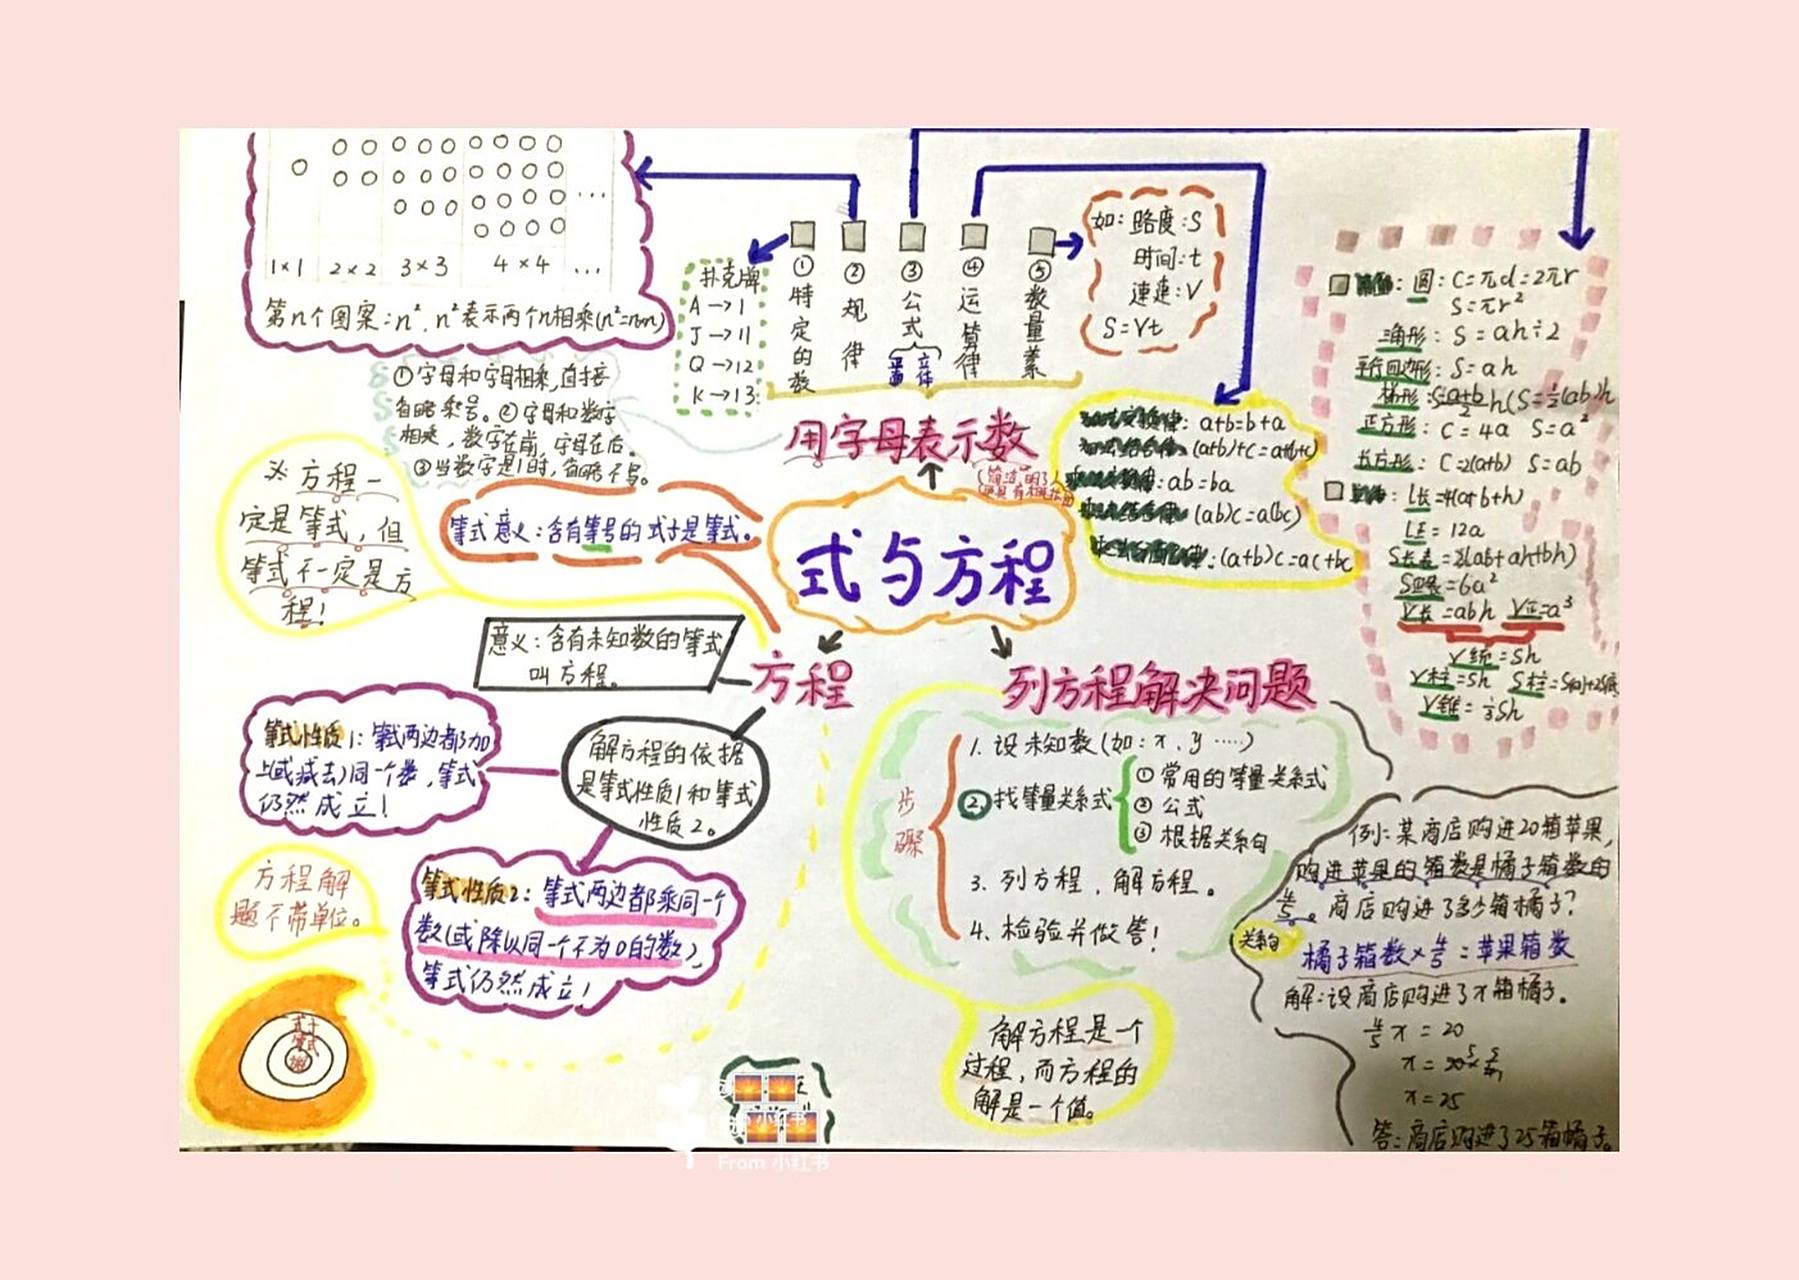 1×1 2×2 3×3 4×4 ...
第n个图案:n²,n²表示两个n相乘(n²=n×n)
扑克牌
A→1
J→11
Q→12
K→13
①特定的数
②规律
③公式
平面 立体
④运算律
⑤数量关系
如:路度:S
时间:t
速速:V
S=Vt
用字母表示数
①字母和字母相乘,直接
省略乘号。②字母和数字
相乘,数字在前,字母在后。
③当数字是1时,省略不写。
a+b=b+a
(a+b)+c=a+(b+c)
ab=ba
(ab)c=a(bc)
(a+b)c=ac+bc
圆:C=πd=2πr
S=πr²
三角形:S=ah÷2
平行四边形:S=ah
梯形:S=a+b/2 h(S=½(ab)h
正方形:C=4a S=a²
长方形:C=2(a+b) S=ab
L长=4(a+b+h)
L正=12a
S长表=2(ab+ah+bh)
S正表=6a²
V长=abh V正=a³
V统=Sh
V柱=Sh
V锥=⅓Sh
式与方程
※方程一
定是等式,但
等式不一定是方
程!
等式意义:含有等号的式子是等式。
意义:含有未知数的等式
叫方程。
方程
解方程的依据
是等式性质1和等式
性质2。
等式性质1:等式两边都加
上(或减去)同一个数,等式
仍然成立!
等式性质2:等式两边都乘同一个
数(或除以同一个不为0的数),
等式仍然成立!
方程解
题不带单位。
式子
等式
列方程解决问题
步骤
1.设未知数(如:x、y……)
2.找等量关系式
①常用的等量关系式
②公式
③根据关系句
3.列方程,解方程。
4.检验并做答!
解方程是一个
过程,而方程的
解是一个值。
例:某商店购进20箱苹果,
购进苹果的箱数是橘子箱数的
4/5。商店购进了多少箱橘子?
关系句
橘子箱数×4/5=苹果箱数
解:设商店购进了x箱橘子。
4/5x=20
x=20×5/4
x=25
答:商店购进了25箱橘子。
小红书
From 小红书